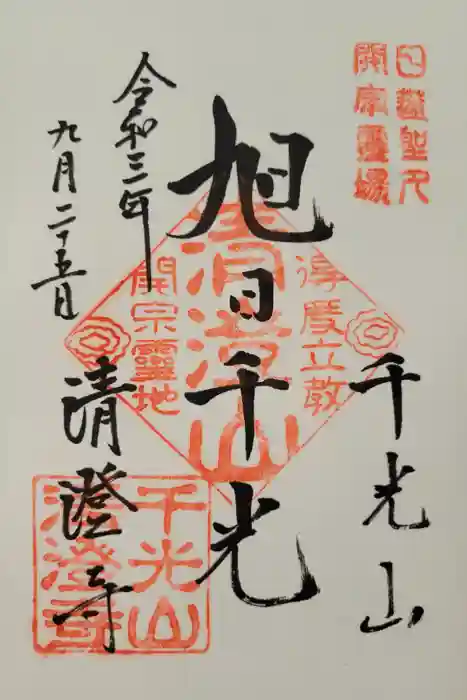 日蓮聖人
開宗靈場
千光山
旭日千光
得度立教
開宗靈地
清澄寺
令和三年
九月二十五日
千光山
清澄寺